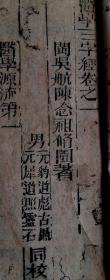 醫學三字經卷之一
閩吳航陳念祖脩園著
男
元豹道彪古愚
元犀道照靈石
同校
醫學源流第一